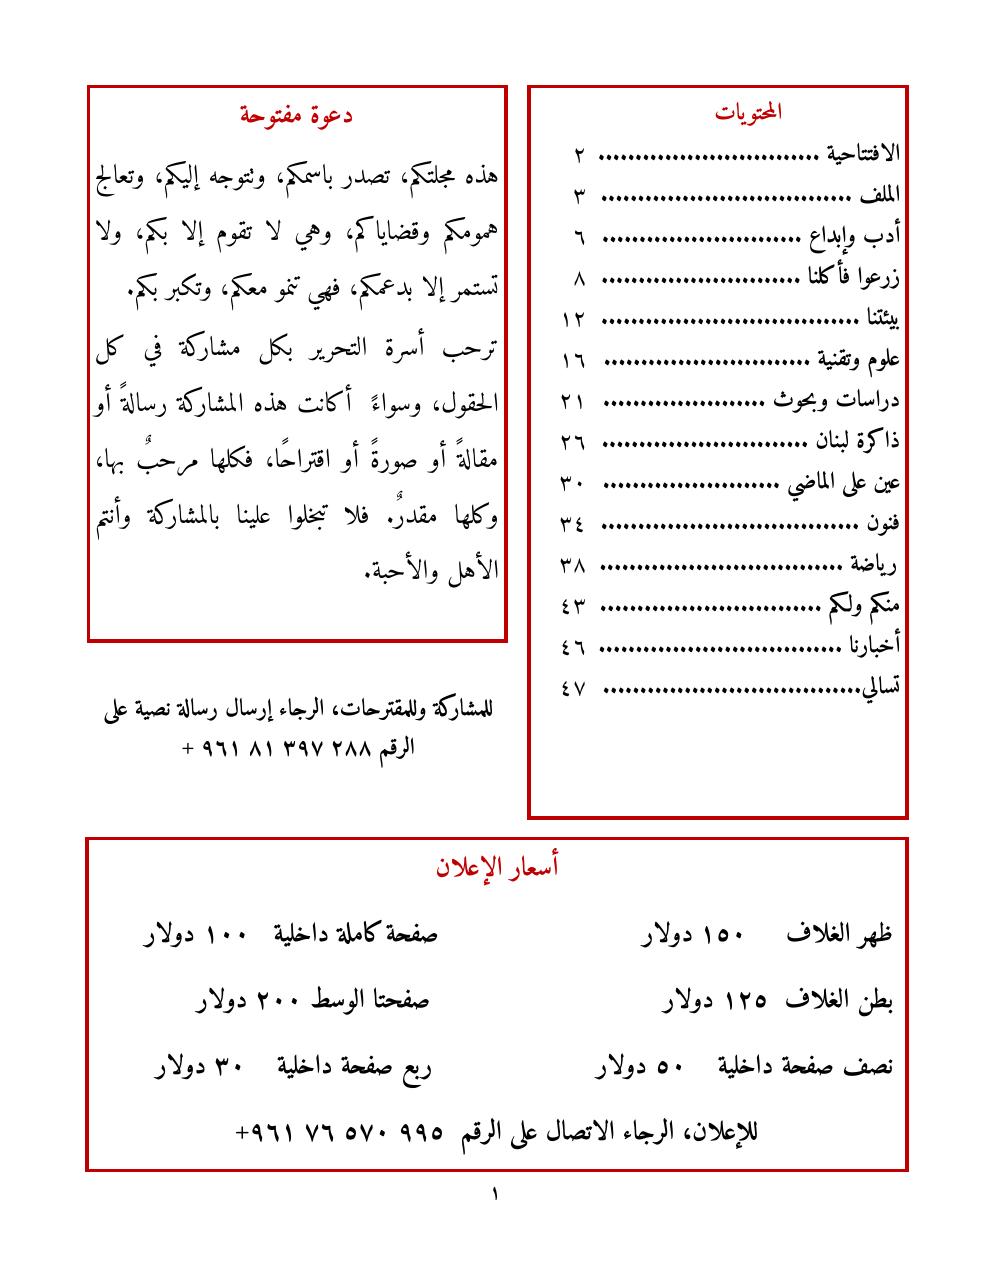 المحتويات
الافتتاحية .............................. ٢
الملف .................................. ٣
أدب وإبداع ........................... ٦
زرعوا فأكلنا ........................... ٨
بيئتنا ................................... ١٢
علوم وتقنية ............................ ١٦
دراسات وبحوث ...................... ٢١
ذاكرة لبنان ............................ ٢٦
عين على الماضي ........................ ٣٠
فنون ................................... ٣٤
رياضة ................................. ٣٨
منكم ولكم .............................. ٤٣
أخبارنا ................................. ٤٦
تسالي................................... ٤٧
دعوة مفتوحة
هذه مجلتكم، تصدر باسمكم، وتتوجه إليكم، وتعالج
همومكم وقضاياكم، وهي لا تقوم إلا بكم، ولا
تستمر إلا بدعمكم، فهي تنمو معكم، وتكبر بكم.
ترحب أسرة التحرير بكل مشاركة في كل
الحقول، وسواءً أكانت هذه المشاركة رسالةً أو
مقالةً أو صورةً أو اقتراحًا، فكلها مرحبٌ بها،
وكلها مقدرٌ. فلا تبخلوا علينا بالمشاركة وأنتم
الأهل والأحبة.
للمشاركة وللمقترحات، الرجاء إرسال رسالة نصية على
الرقم ٢٨٨ ٣٩٧ ٨١ ٩٦١ +
أسعار الإعلان
ظهر الغلاف ١٥٠ دولار صفحة كاملة داخلية ١٠٠ دولار
بطن الغلاف ١٢٥ دولار صفحتا الوسط ٢٠٠ دولار
نصف صفحة داخلية ٥٠ دولار ربع صفحة داخلية ٣٠ دولار
للإعلان، الرجاء الاتصال على الرقم ٩٩٥ ٥٧٠ ٧٦ ٩٦١+
١